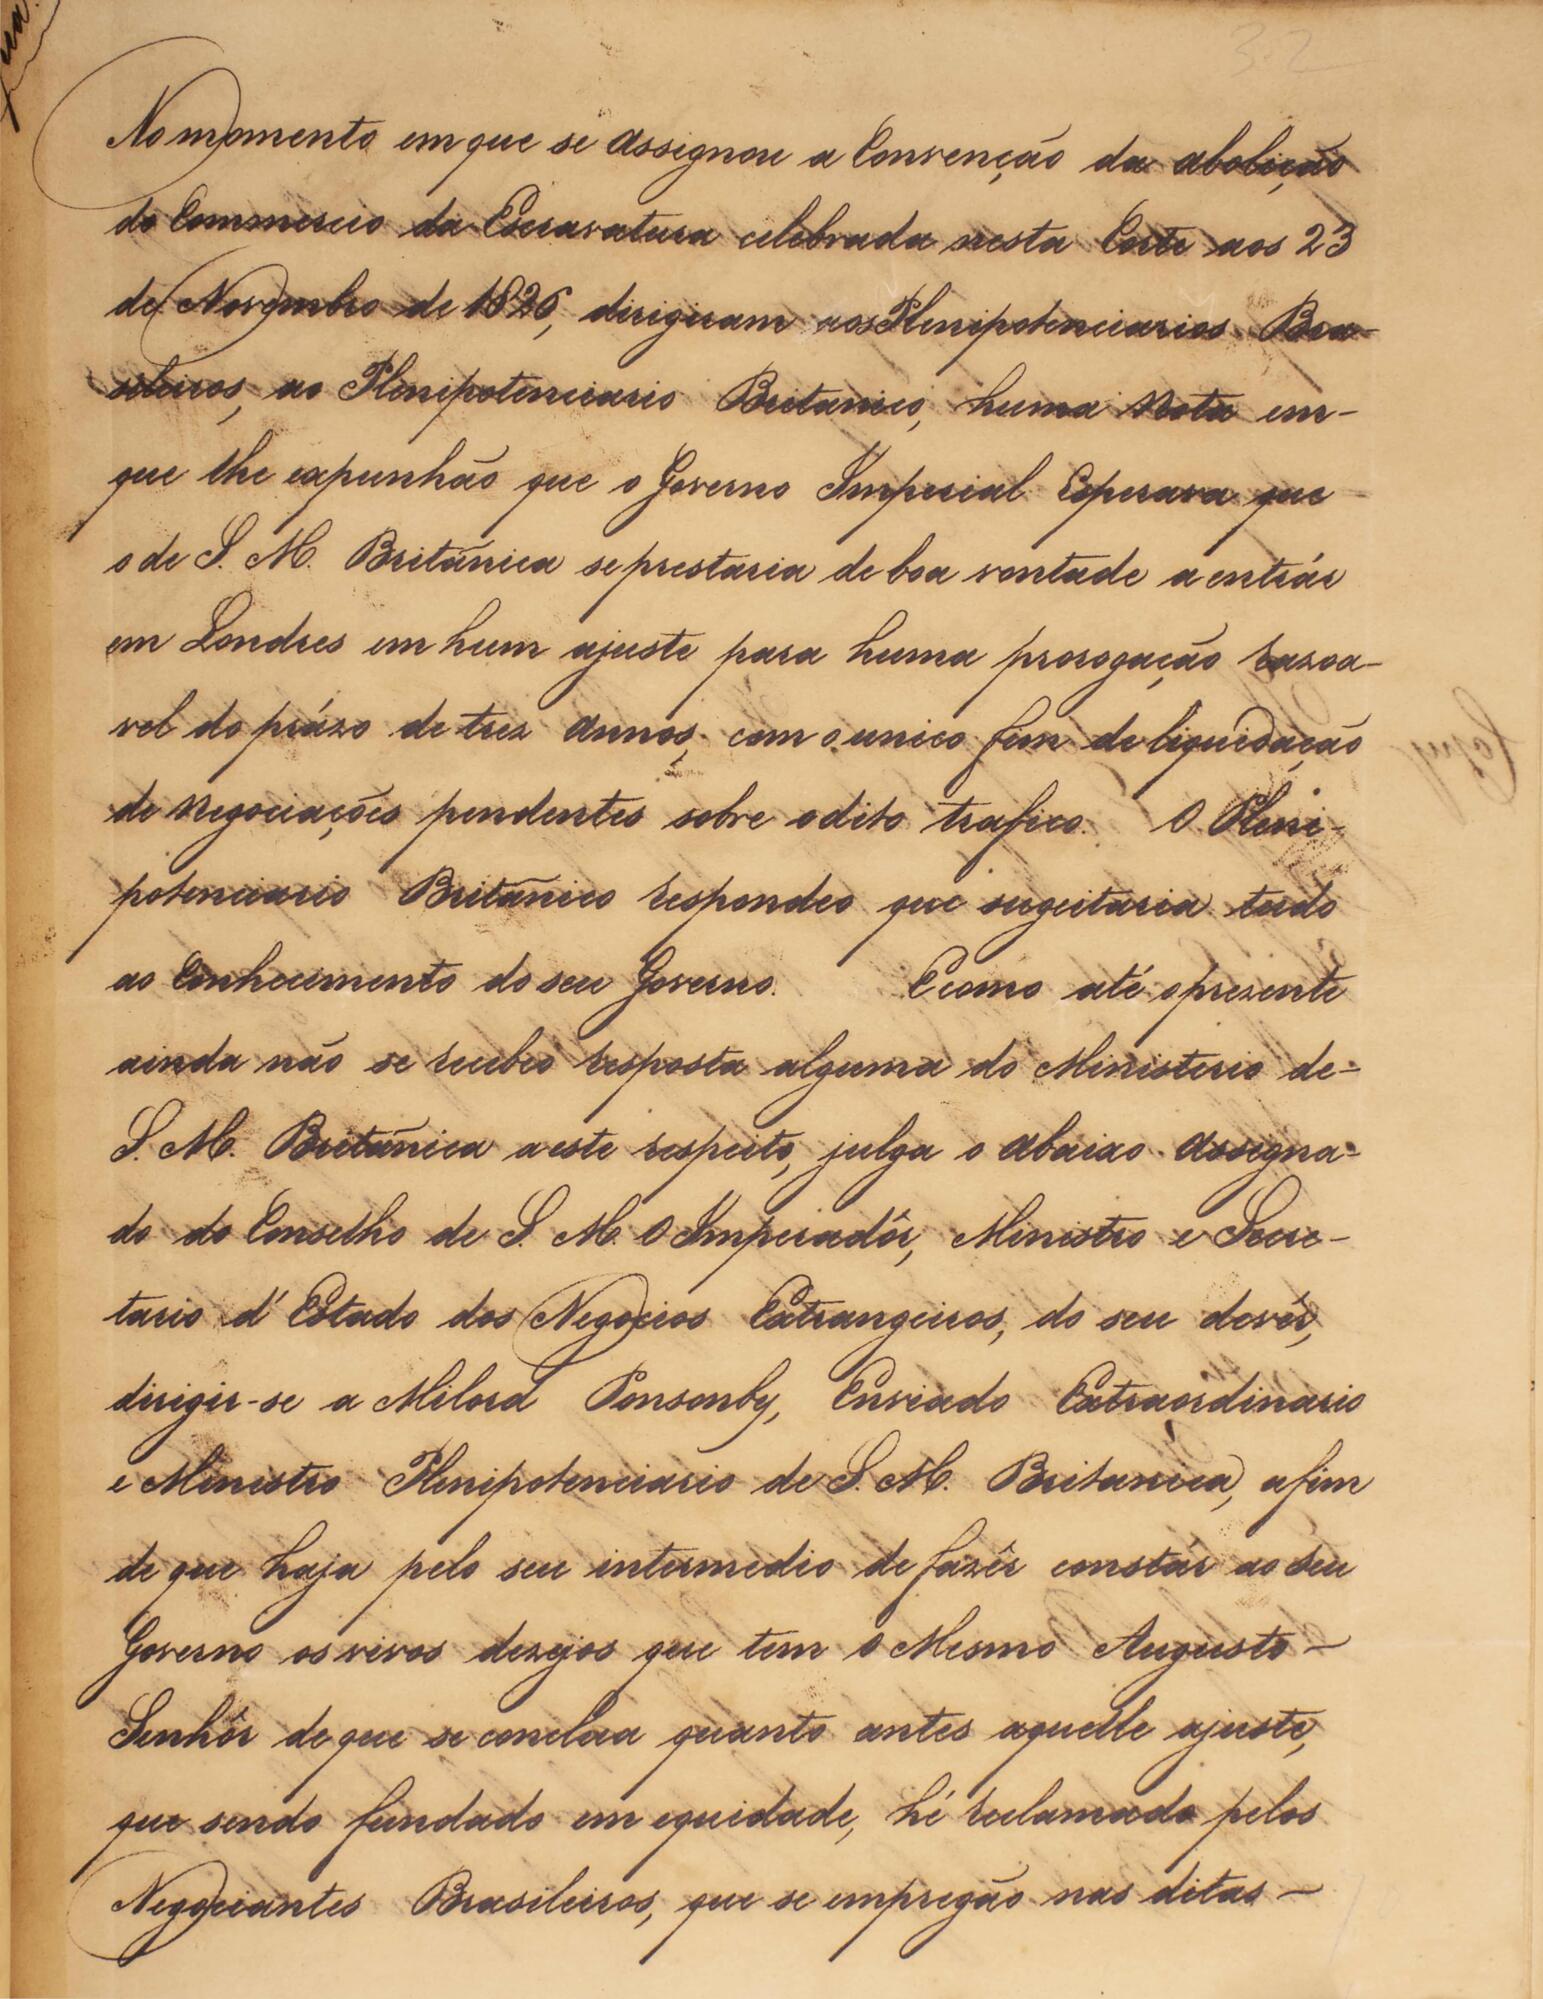 32
No momento em que se assignou a Convenção da abolição
do Commercio da Escravatura celebrada nesta Corte aos 23
de Novembro de 1826, dirigiram aos Plenipotenciarios Bra-
sileiros, ao Plenipotenciario Britanico, huma Nota em-
que lhe expunhão que o Governo Imperial Esperava que
o de S. M. Británica se prestaria de boa vontade a entrár
em Londres em hum ajuste para huma prorogação razoa-
vel do prázo de trez annos, com o unico fim de liquidação
de negociações pendentes sobre o dito trafico. O Pleni-
potenciario Británico respondeo que sugeitaria tudo
ao Conhecimento do seu Governo. E como até o prezente
ainda não se recebeo resposta alguma do Ministerio de-
S. M. Británica a este respeito, julga o abaixo assigna-
do do Conselho de S. M. O Imperadôr, Ministro e Secre-
tario d'Estado dos Negocios Extrangeiros, do seu devêr,
dirigir-se a Milord Ponsonby, Enviado Extraordinario
e Ministro Plenipotenciario de S. M. Britanica, afim
de que haja pelo seu intermedio de fazêr constár ao seu
Governo os vivos dezejos que tem O Mesmo Augusto-
Senhôr de que se conclua quanto antes aquelle ajuste,
que sendo fundado em equidade, hé reclamado pelos
Negociantes Brasileiros, que se empregão nas ditas-